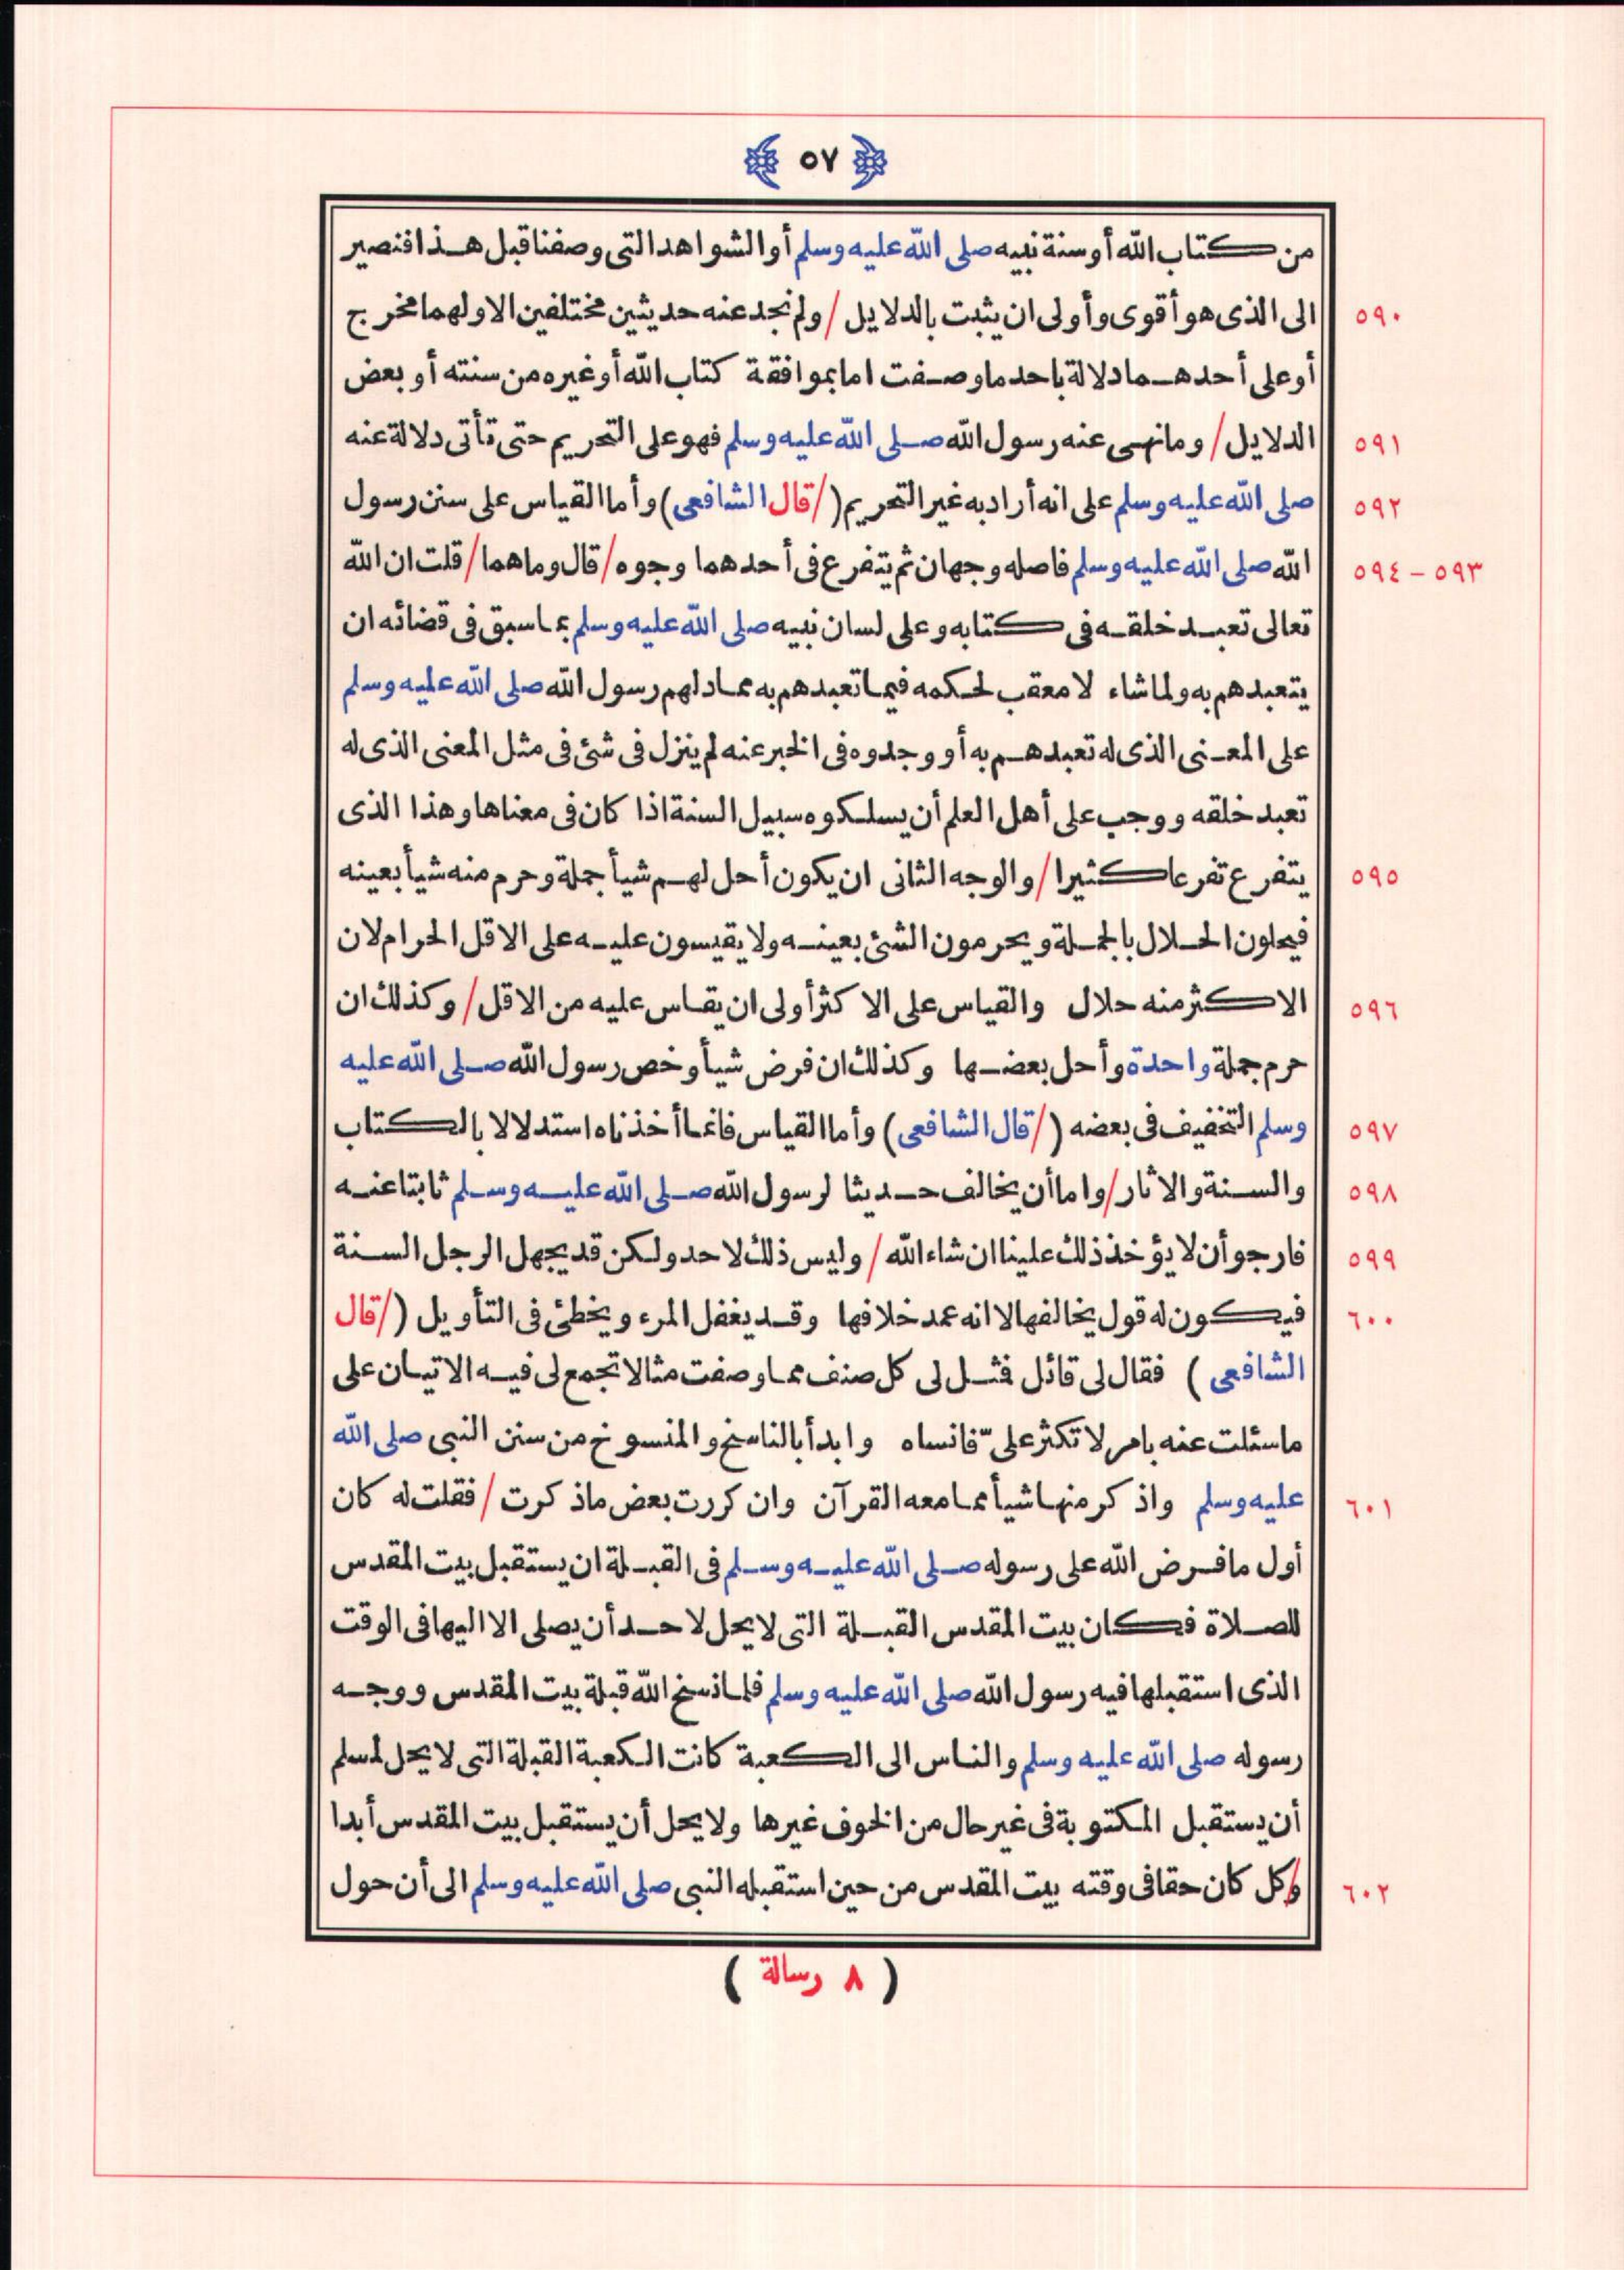 ٥٧
من كتاب الله أو سنة نبيه صلى الله عليه وسلم أو الشواهد التى وصفنا قبل هذا فنصير
٥٩٠ الى الذى هو أقوى وأولى ان يثبت بالدلايل / ولم نجد عنه حديثين مختلفين الا ولهما مخرج
أو على أحدهما دلالة باحد ما وصفت اما بموافقة كتاب الله أو غيره من سنته أو بعض
٥٩١ الدلايل / وما نهى عنه رسول الله صلى الله عليه وسلم فهو على التحريم حتى تأتى دلالة عنه
٥٩٢ صلى الله عليه وسلم على انه أراد به غير التحريم (/ قال الشافعى) وأما القياس على سنن رسول
٥٩٣ - ٥٩٤ الله صلى الله عليه وسلم فاصله وجهان ثم يتفرع فى أحدهما وجوه / قال وماهما / قلت ان الله
تعالى تعبد خلقه فى كتابه وعلى لسان نبيه صلى الله عليه وسلم بما سبق فى قضائه ان
يتعبدهم به ولما شاء لا معقب لحكمه فيما تعبدهم به مما دلهم رسول الله صلى الله عليه وسلم
على المعنى الذى له تعبدهم به أو وجدوه فى الخبر عنه لم ينزل فى شئ فى مثل المعنى الذى له
تعبد خلقه ووجب على أهل العلم أن يسلكوه سبيل السنة اذا كان فى معناها وهذا الذى
٥٩٥ يتفرع تفرعا كثيرا / والوجه الثانى ان يكون أحل لهم شيأ جملة وحرم منه شيأ بعينه
فيحلون الحلال بالجملة ويحرمون الشئ بعينه ولا يقيسون عليه على الاقل الحرام لان
٥٩٦ الاكثر منه حلال والقياس على الاكثر أولى ان يقاس عليه من الاقل / وكذلك ان
حرم جملة واحدة وأحل بعضها وكذلك ان فرض شيأ وخص رسول الله صلى الله عليه
٥٩٧ وسلم التخفيف فى بعضه (/ قال الشافعى) وأما القياس فانما أخذناه استدلالا بالكتاب
٥٩٨ والسنة والاثار / واما أن يخالف حديثا لرسول الله صلى الله عليه وسلم ثابتا عنه
٥٩٩ فارجو أن لا يؤخذ ذلك علينا ان شاء الله / وليس ذلك لاحد ولكن قد يجهل الرجل السنة
٦٠٠ فيكون له قول يخالفها لا انه عمد خلافها وقد يغفل المرء ويخطئ فى التأويل (/ قال
الشافعى) فقال لى قائل فمثل لى كل صنف مما وصفت مثالا تجمع لى فيه الاتيان على
ما سئلت عنه بامر لا تكثر علىّ فانساه وابدأ بالناسخ والمنسوخ من سنن النبى صلى الله
٦٠١ عليه وسلم واذكر منها شيأ مما معه القرآن وان كررت بعض ما ذكرت / فقلت له كان
أول ما فرض الله على رسوله صلى الله عليه وسلم فى القبلة ان يستقبل بيت المقدس
للصلاة فكان بيت المقدس القبلة التى لا يحل لاحد أن يصلى الا اليها فى الوقت
الذى استقبلها فيه رسول الله صلى الله عليه وسلم فلما نسخ الله قبلة بيت المقدس ووجه
رسوله صلى الله عليه وسلم والناس الى الكعبة كانت الكعبة القبلة التى لا يحل لمسلم
أن يستقبل المكتوبة فى غير حال من الخوف غيرها ولا يحل أن يستقبل بيت المقدس أبدا
٦٠٢ / وكل كان حقا فى وقته بيت المقدس من حين استقبله النبى صلى الله عليه وسلم الى أن حول
( ٨ رسالة )